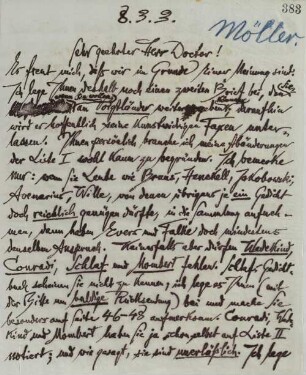 383
8. 3. 3.
Möller
Sehr geehrter Herr Doctor!
Es freut mich, daß wir im Grunde einer Meinung sind.
Ich lege Ihnen deshalb noch einen zweiten Brief bei, den
an Voigtländer
wird er hoffentlich seine Faxen unter-
lassen. Ihnen persönlich brauche ich meine Abänderungen
der Liste I wohl kaum zu begründen. Ich bemerke
nur: wenn Sie Leute wie Henckell, Jakobowski,
Avenarius, Wille, von denen übrigens je ein Gedicht
doch reichlich genügen dürfte, in die Sammlung aufneh-
men, dann haben Evers und Falke doch mindestens
denselben Anspruch. Keinesfalls aber dürfen Wedekind,
Conradi, Schlaf und Mombert fehlen. Schlafs Gedicht-
buch scheinen Sie nicht zu kennen; ich lege es Ihnen (mit
der Bitte um baldige Rücksendung) bei und mache Sie
besonders auf Seite 46-48 aufmerksam. Conradi, Wede-
kind und Mombert haben Sie ja schon selbst auf Liste II
notiert; und wie gesagt, sie sind unerläßlich. Ich lege